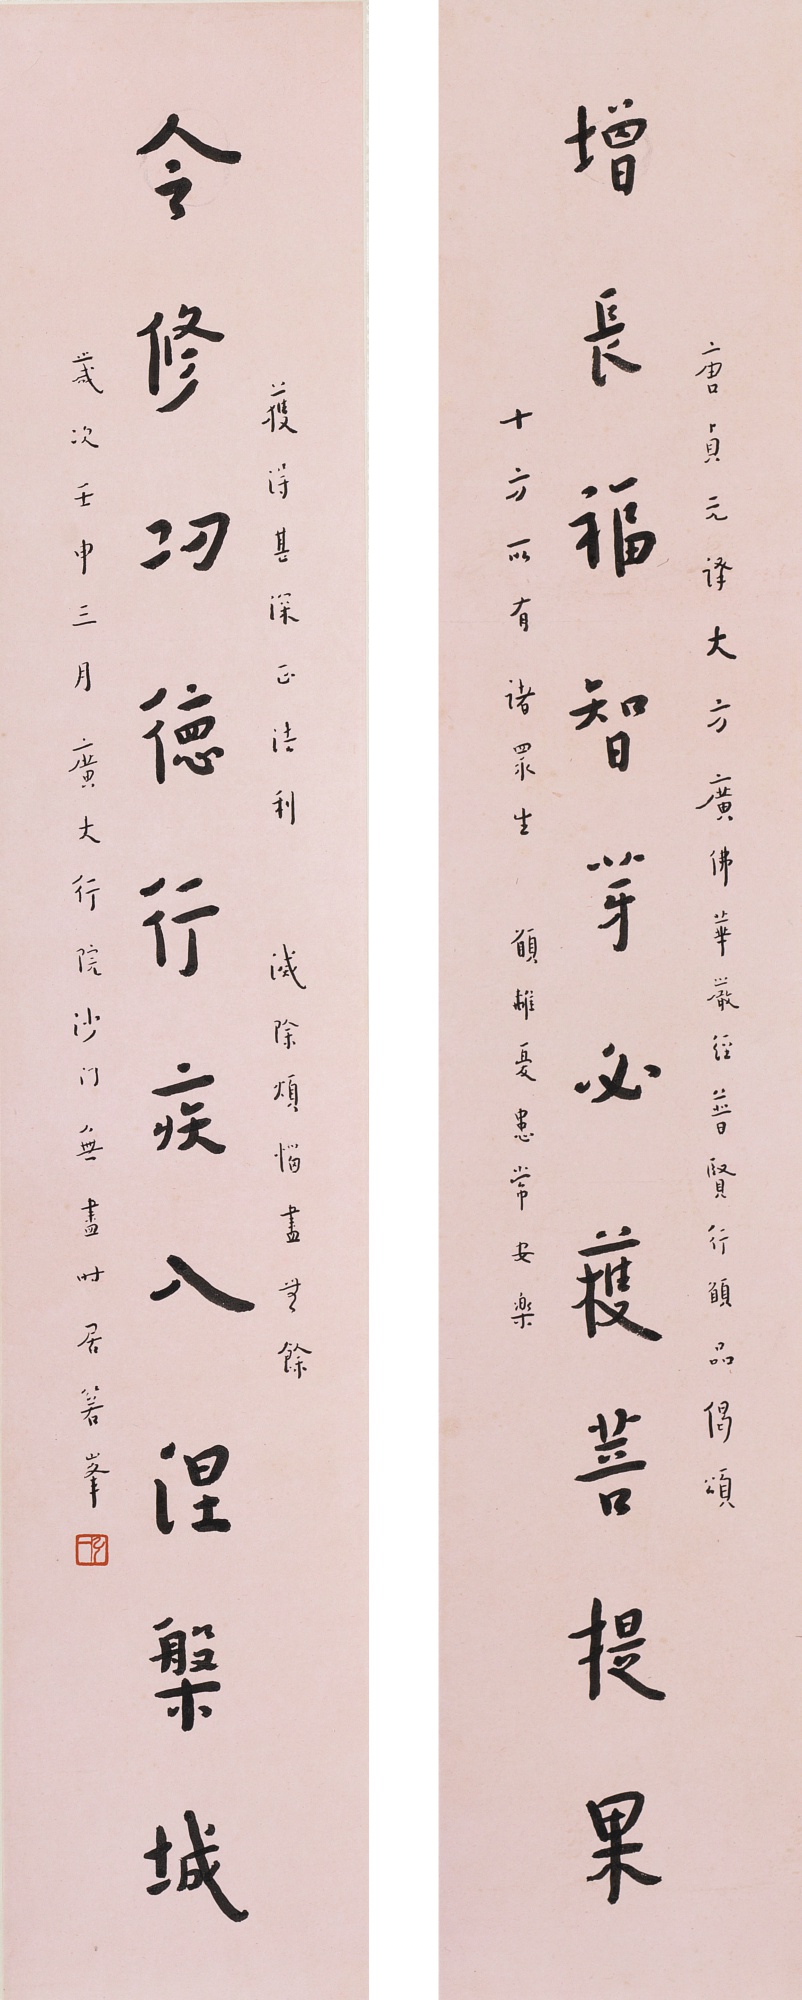 唐貞元譯大方廣佛華嚴經普賢行願品偈頌
增長福智芽必獲菩提果
十方所有諸眾生 願離憂患常安樂
獲得甚深正法利 滅除煩惱盡無餘
令修功德行疾入涅槃城
歲次壬申三月廣大行院沙門無盡時居箬峯